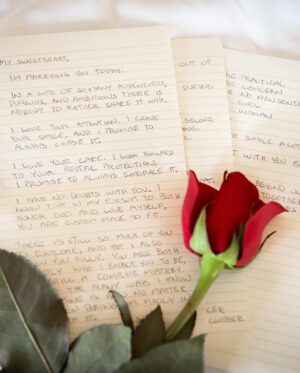 MY SWEETHEART,
I'M MARRYING YOU TODAY.
IN A LIFE OF SO MANY ADVENTURES,
PURSUITS, AND AMBITIONS THERE IS
NOBODY I'D RATHER SHARE IT WITH.
I LOVE YOUR ATTENTION. I CRAVE
YOUR SMILE, AND I PROMISE TO
ALWAYS CHASE IT.
I LOVE YOUR CARE. I LOOK FORWARD
TO YOUR PROTECTION,
I PROMISE TO ALWAYS EMBRACE IT.
I HAVE NO DOUBTS WITH YOU. I
KNOW THAT IN MY PURSUITS TO BOTH
HONOR GOD AND LOVE MYSELF,
YOU ARE CUSTOM MADE TO FIT.
THERE IS STILL SO MUCH OF YOU
TO EXPLORE, AND YET I ALSO
YOU FULLY. YOU ARE BOTH
WHO I EXPECT YOU TO BE,
STILL A COMPLETE MYSTERY.
MANY WAYS I KNOW
IS AND NO MATTER
BRING I'M MADLY IN
WITH IT.
OUT OF
DURING
SECOND,
PRACTICAL
CONCERN
NO NONSENSE
GIRL
WOMAN
SMILE ALO
WITH YOU
BEYOND
TOGETHER